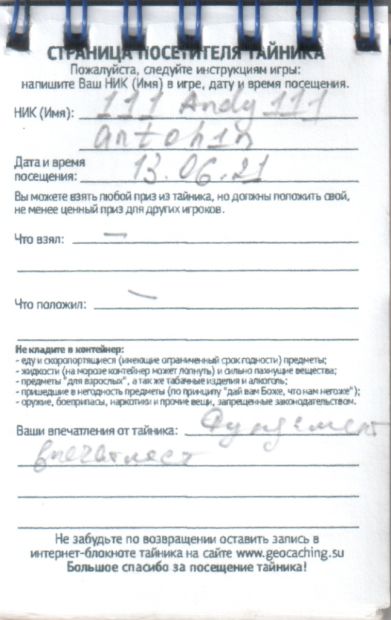 СТРАНИЦА ПОСЕТИТЕЛЯ ТАЙНИКА
Пожалуйста, следуйте инструкциям игры:
напишите Ваш НИК (Имя) в игре, дату и время посещения.
НИК (Имя): 111 Andy 111
antohin
Дата и время
посещения: 13.06.21
Вы можете взять любой приз из тайника, но должны положить свой,
не менее ценный приз для других игроков.
Что взял: —
Что положил: —
Не кладите в контейнер:
- еду и скоропортящиеся (имеющие ограниченный срок годности) предметы;
- жидкости (на морозе контейнер может лопнуть) и сильно пахнущие вещества;
- предметы "для взрослых", а так же табачные изделия и алкоголь;
- пришедшие в негодность предметы (по принципу "дай вам Боже, что нам негоже");
- оружие, боеприпасы, наркотики и прочие вещи, запрещенные законодательством.
Ваши впечатления от тайника: Фундамент
впечатляет
Не забудьте по возвращении оставить запись в
интернет-блокноте тайника на сайте www.geocaching.su
Большое спасибо за посещение тайника!